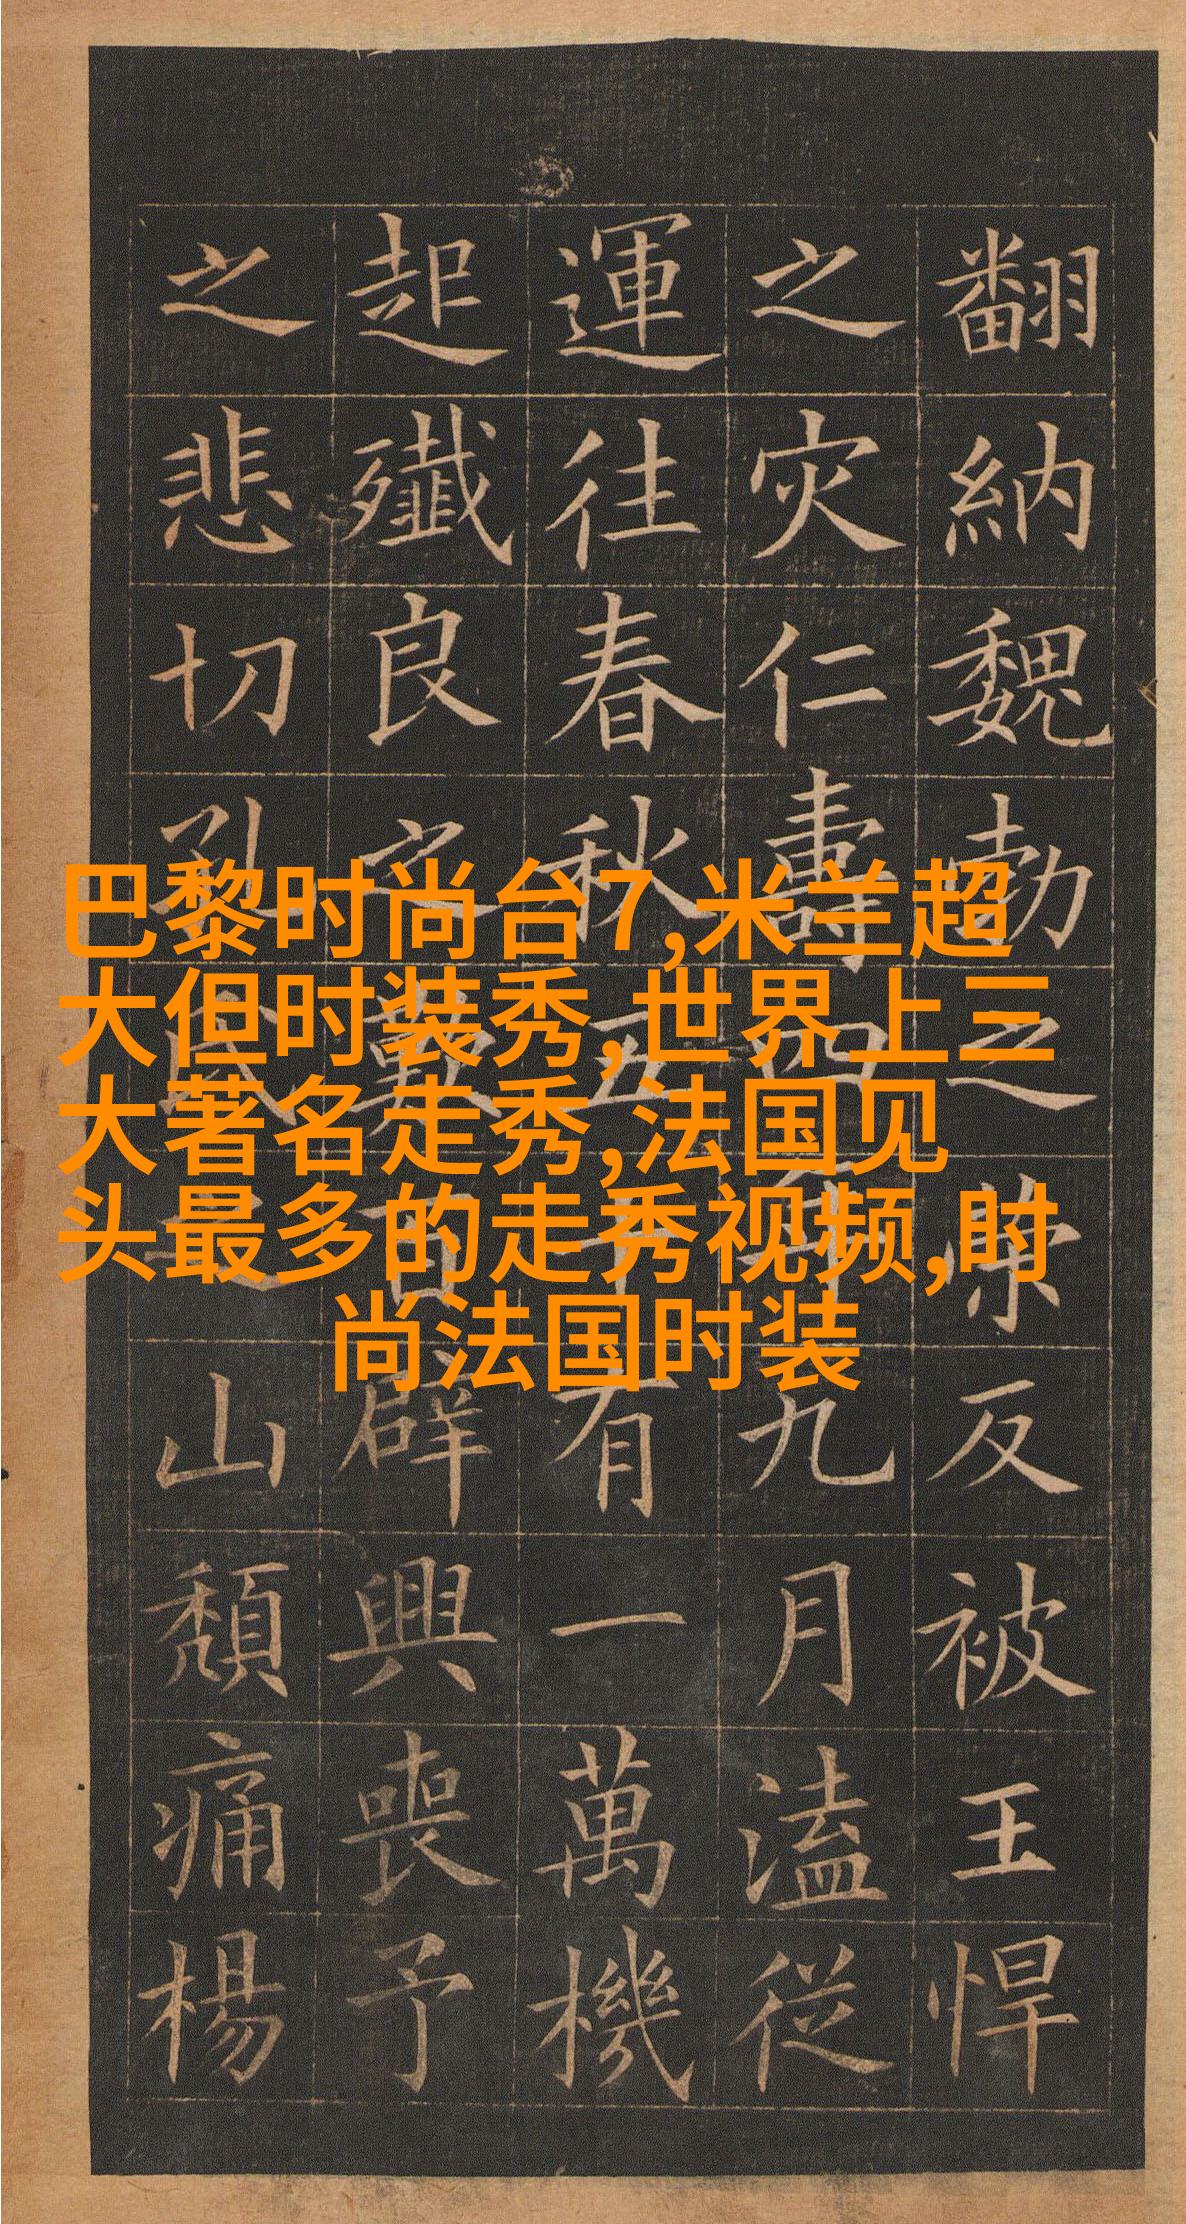 翻納魏勃之反被王悍
之灾仁壽四年九月溘從
運往春秋五十有一萬機
起殲良之歎百辟興喪予
之悲切孔氏之山頹痛楊
巴黎时尚台7,米兰超
大但时装秀,世界上三
大著名走秀,法国见
头最多的走秀视频,时
尚法国时装